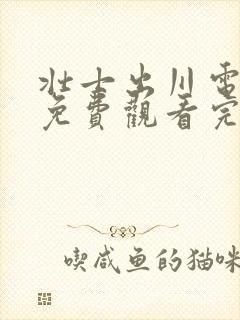 壮士出川電
免費觀看完
喫咸鱼的猫咪